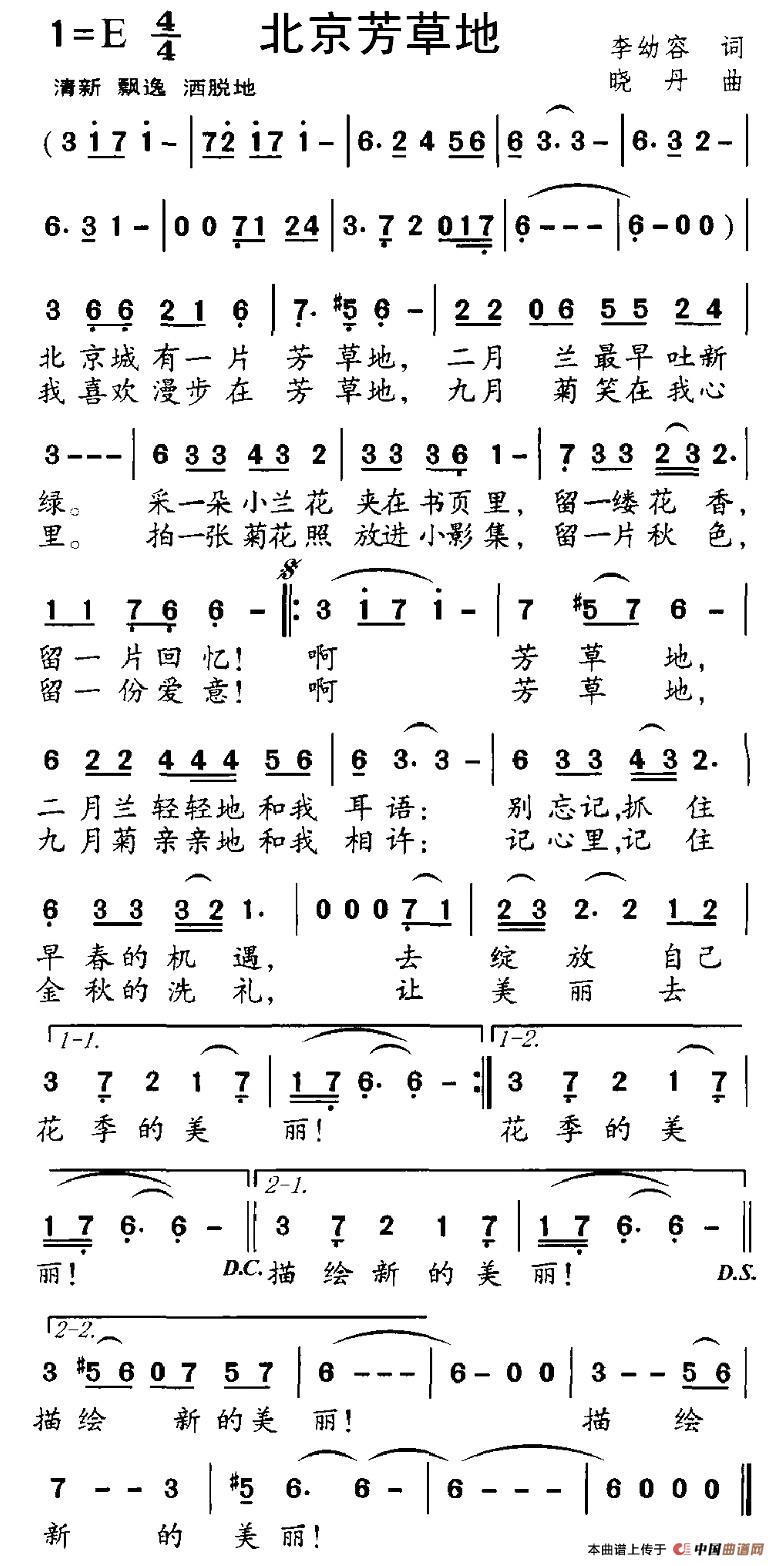 1=E 4/4 北京芳草地 李幼容 词
清新 飘逸 洒脱地 晓丹 曲
(3 1 7 1 - | 7 2 1 7 1 - | 6. 2 4 5 6 | 6 3. 3 - | 6. 3 2 - |
6. 3 1 - | 0 0 7 1 2 4 | 3. 7 2 0 1 7 | 6 - - - | 6 - 0 0 )
3 6 6 2 1 6 | 7. #5 6 - | 2 2 0 6 5 5 2 4 |
北京城有一片芳草地，二月兰最早吐新
我喜欢漫步在芳草地，九月菊笑在我心
3 - - - | 6 3 3 4 3 2 | 3 3 3 6 1 - | 7 3 3 2 3 2. |
绿。采一朵小兰花夹在书页里，留一缕花香，
里。拍一张菊花照放进小影集，留一片秋色，
1 1 7 6 6 - ‖: 3 1 7 1 - | 7 #5 7 6 - |
留一片回忆！啊芳草地，
留一份爱意！啊芳草地，
6 2 2 4 4 4 5 6 | 6 3. 3 - | 6 3 3 4 3 2. |
二月兰轻轻地和我耳语：别忘记，抓住
九月菊亲亲地和我相许：记心里，记住
6 3 3 3 2 1. | 0 0 0 7 1 | 2 3 2. 2 1 2 |
早春的机遇，去绽放自己
金秋的洗礼，让美丽去
1-1. 1-2.
3 7 2 1 7 | 1 7 6. 6 - :‖ 3 7 2 1 7 |
花季的美丽！花季的美
2-1.
1 7 6. 6 - ‖ 3 7 2 1 7 | 1 7 6. 6 - ‖
丽！ D.C. 描绘新的美丽！ D.S.
2-2.
3 #5 6 0 7 5 7 | 6 - - - | 6 - 0 0 | 3 - - 5 6 |
描绘新的美丽！描绘
7 - - 3 | #5 6. 6 - | 6 - - - | 6 0 0 0 ‖
新的美丽！
本曲谱上传于 中国曲谱网